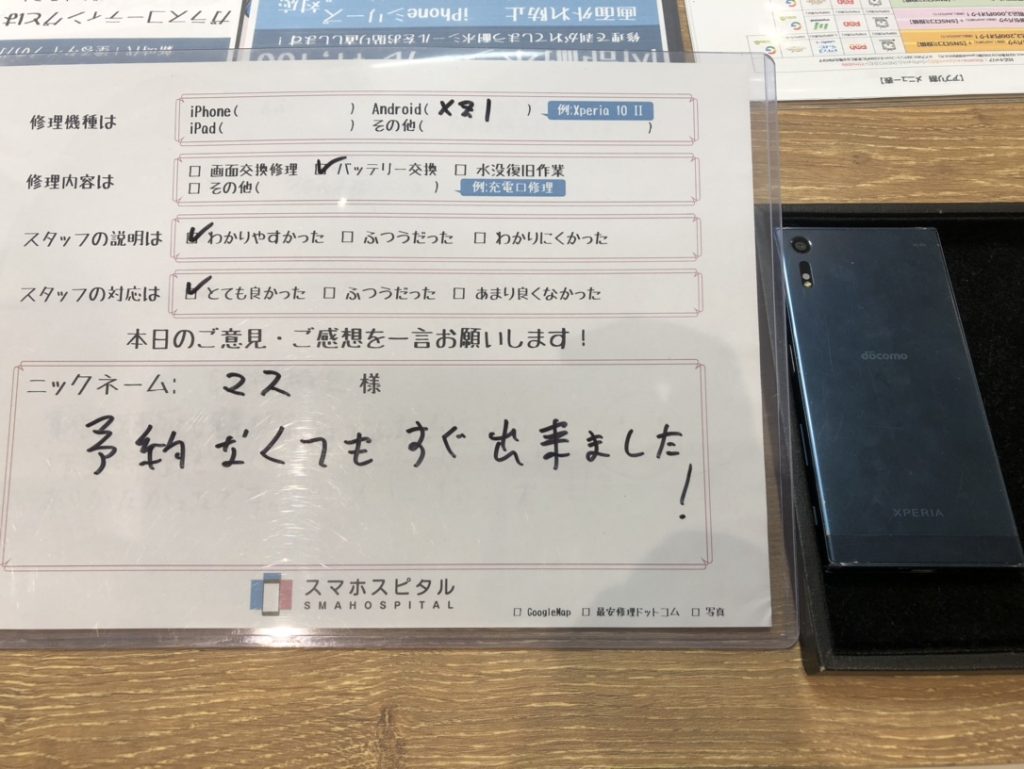 ガラスコーティングとは
画面外れ防止
iPhoneシリーズ対応
修理で剥がれてしまう耐水シールをお貼り直しします！
[アプリ割 メニュー表]
修理機種は
iPhone( ) Android( XZ1 ) 例:Xperia 10 II
iPad( ) その他( )
修理内容は
□ 画面交換修理 ☑ バッテリー交換 □ 水没復旧作業
□ その他( ) 例:充電口修理
スタッフの説明は ☑ わかりやすかった □ ふつうだった □ わかりにくかった
スタッフの対応は ☑ とても良かった □ ふつうだった □ あまり良くなかった
本日のご意見・ご感想を一言お願いします！
ニックネーム: マス 様
予約なくてもすぐ出来ました！
スマホスピタル
SMAHOSPITAL
□ GoogleMap □ 最安修理ドットコム □ 写真
döcomo
XPERIA